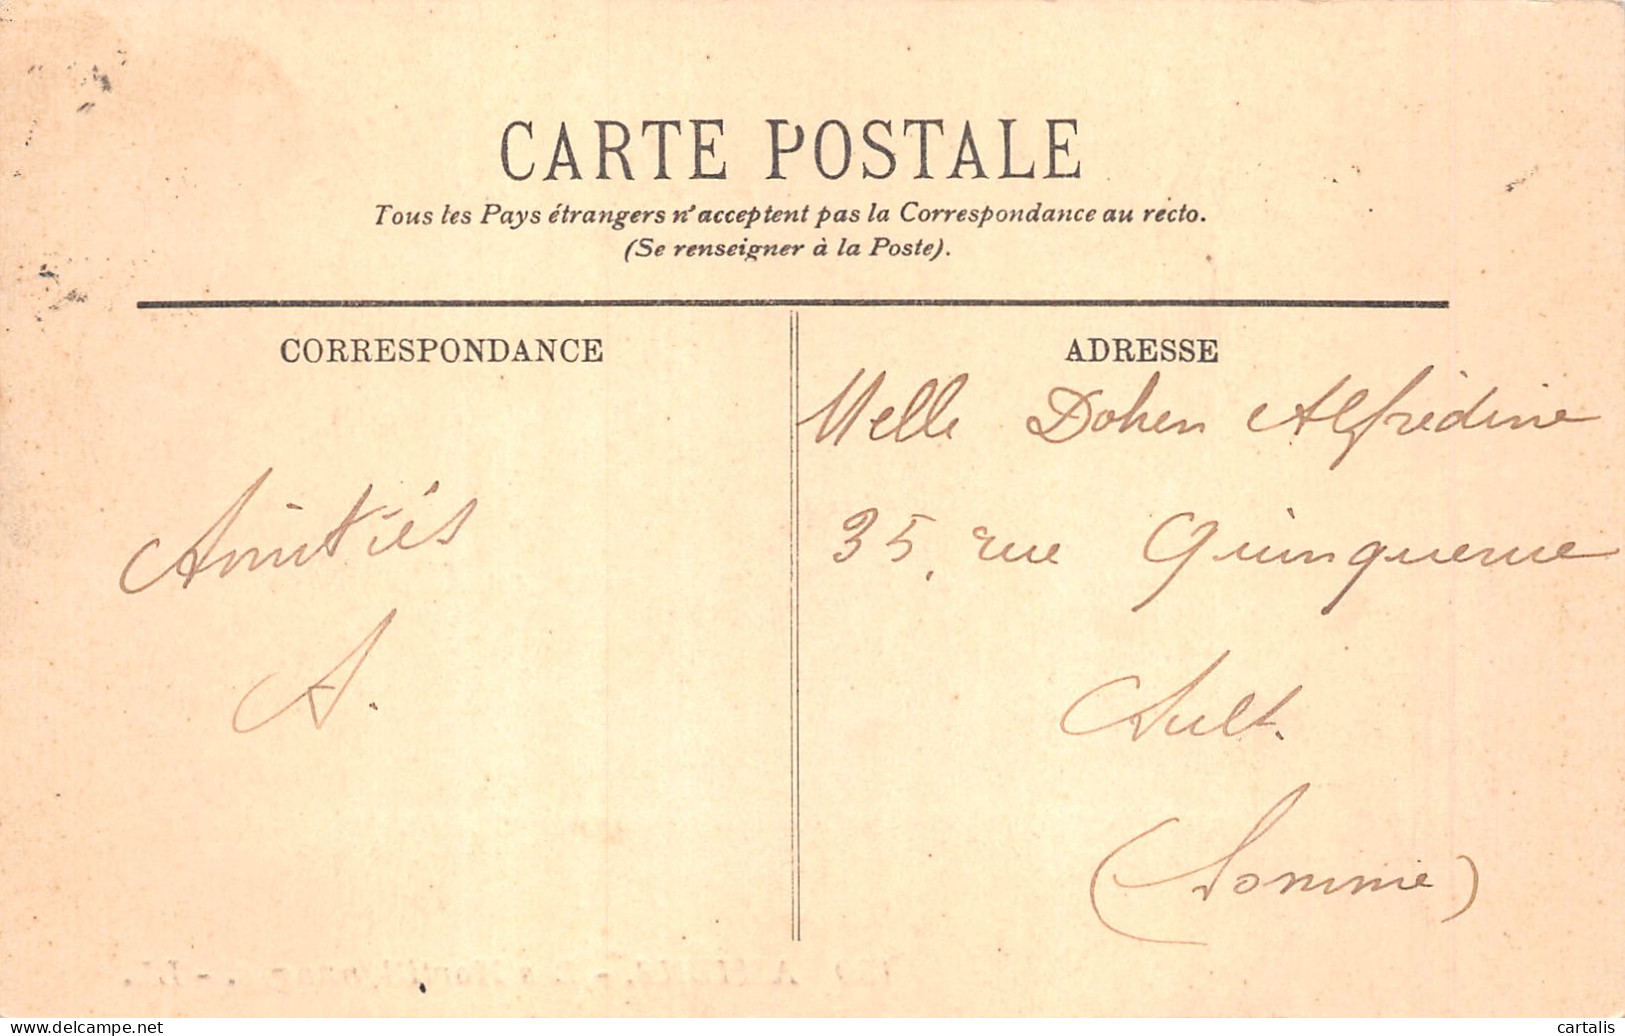 CARTE POSTALE
Tous les Pays étrangers n'acceptent pas la Correspondance au recto.
(Se renseigner à la Poste).
CORRESPONDANCE
Amitiés
A.
ADRESSE
Melle Dohen Alfrédine
35, rue Quinquerue
Ault.
(Somme)
www.delcampe.net
cartalis